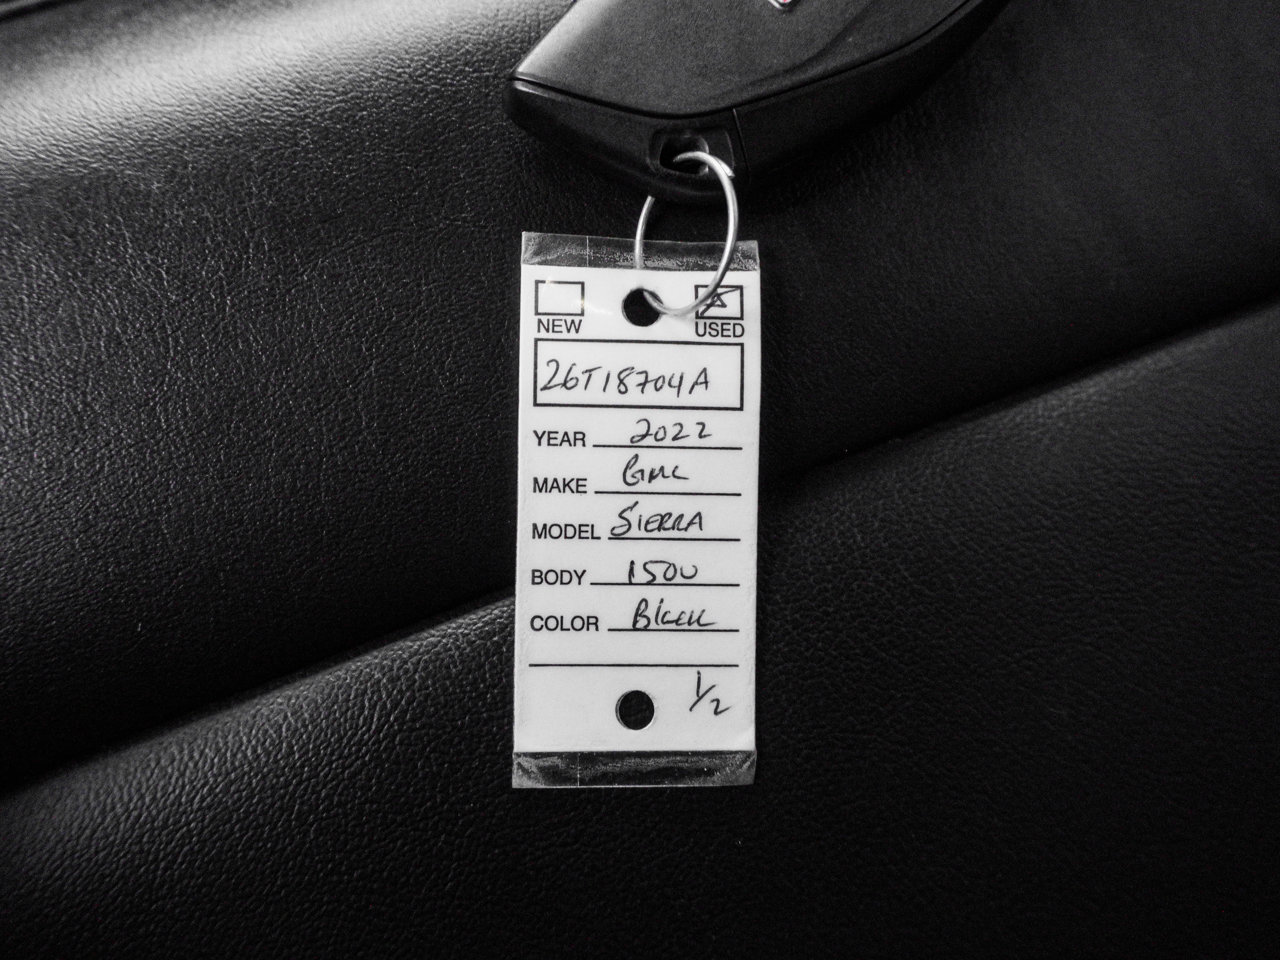 NEW USED
26T18704A
YEAR 2022
MAKE GMC
MODEL SIERRA
BODY 1500
COLOR Black
1/2